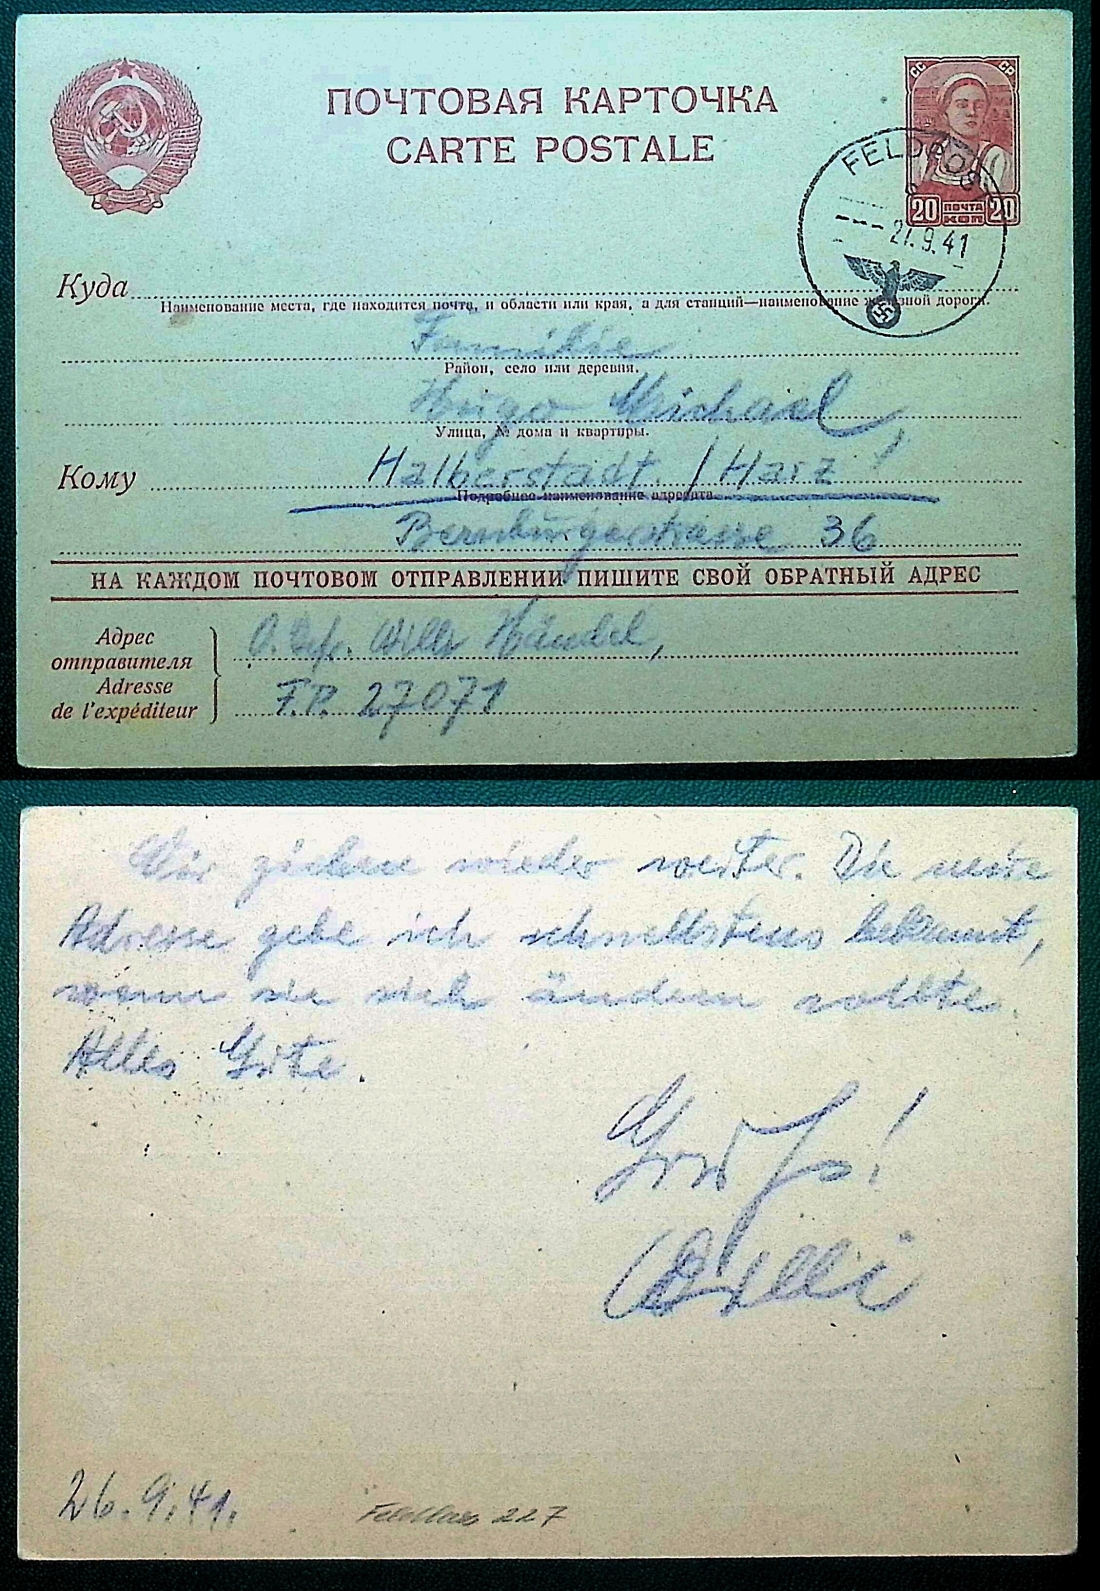 ПОЧТОВАЯ КАРТОЧКА
CARTE POSTALE
СС СР
20 ПОЧТА КОП 20
FELDPOST
27.9.41
Куда
Наименование места, где находится почта, и области или края, а для станций—наименование железной дороги.
Familie
Район, село или деревня.
Hugo Michael,
Улица, № дома и квартиры.
Кому Halberstadt / Harz !
Подробное наименование адресата
Bernburgerstrasse 36
НА КАЖДОМ ПОЧТОВОМ ОТПРАВЛЕНИИ ПИШИТЕ СВОЙ ОБРАТНЫЙ АДРЕС
Адрес
отправителя
Adresse
de l'expéditeur
O. Gefr. Willi Händel,
F.P. 27071
Wir ziehen wieder weiter. Die neue
Adresse gebe ich schnellstens bekannt,
wenn sie sich ändern sollte.
Alles Gute.
Willi
26.9.41.
227